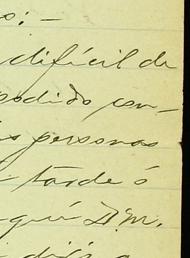 s: -
difícil de
podido en-
as personas
tarde ó
aquí D. m.